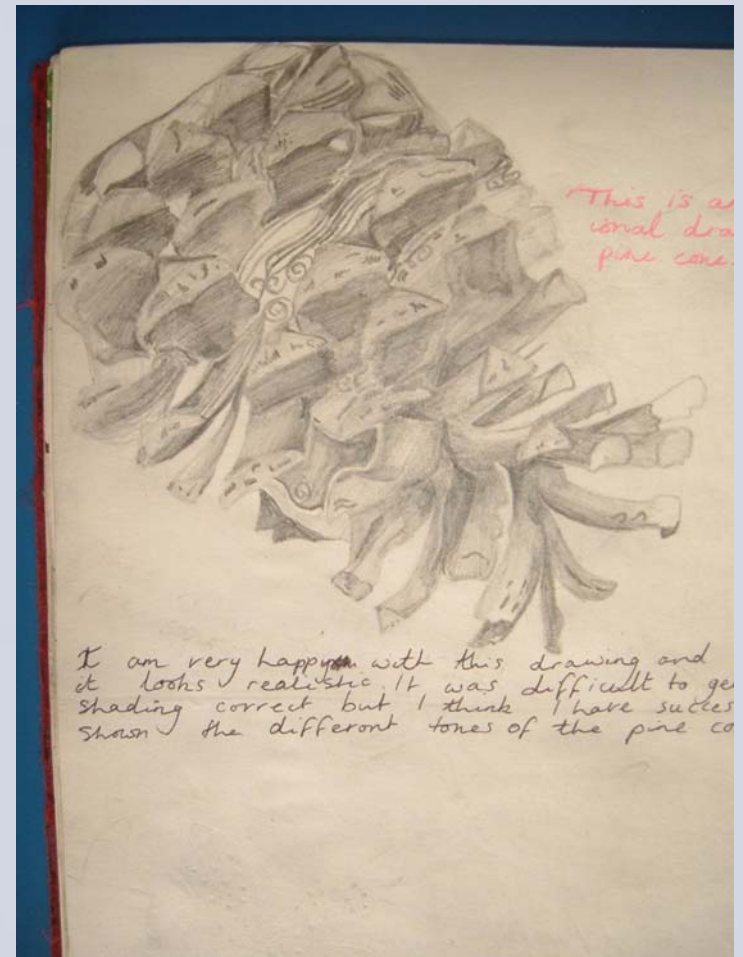 This is a
ional dra
pine cone.
I am very happy with this drawing and
it looks realistic. It was difficult to ge
shading correct but I think I have succes
shown the different tones of the pine co